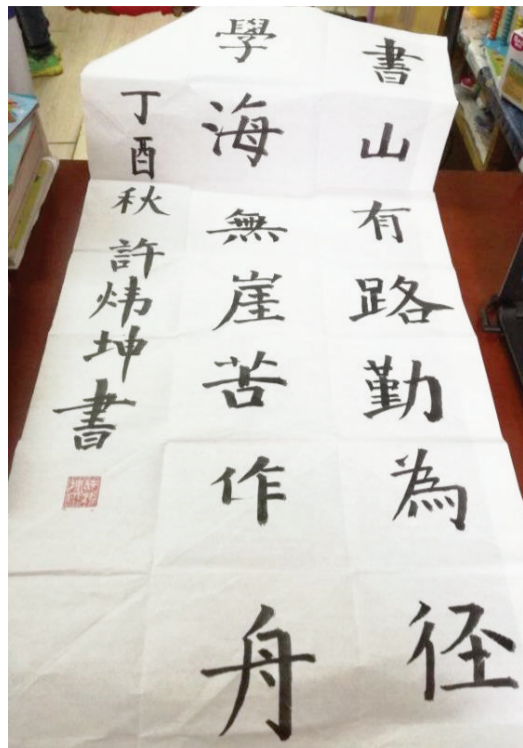 書山有路勤為径
學海無崖苦作舟
丁酉秋許炜坤書